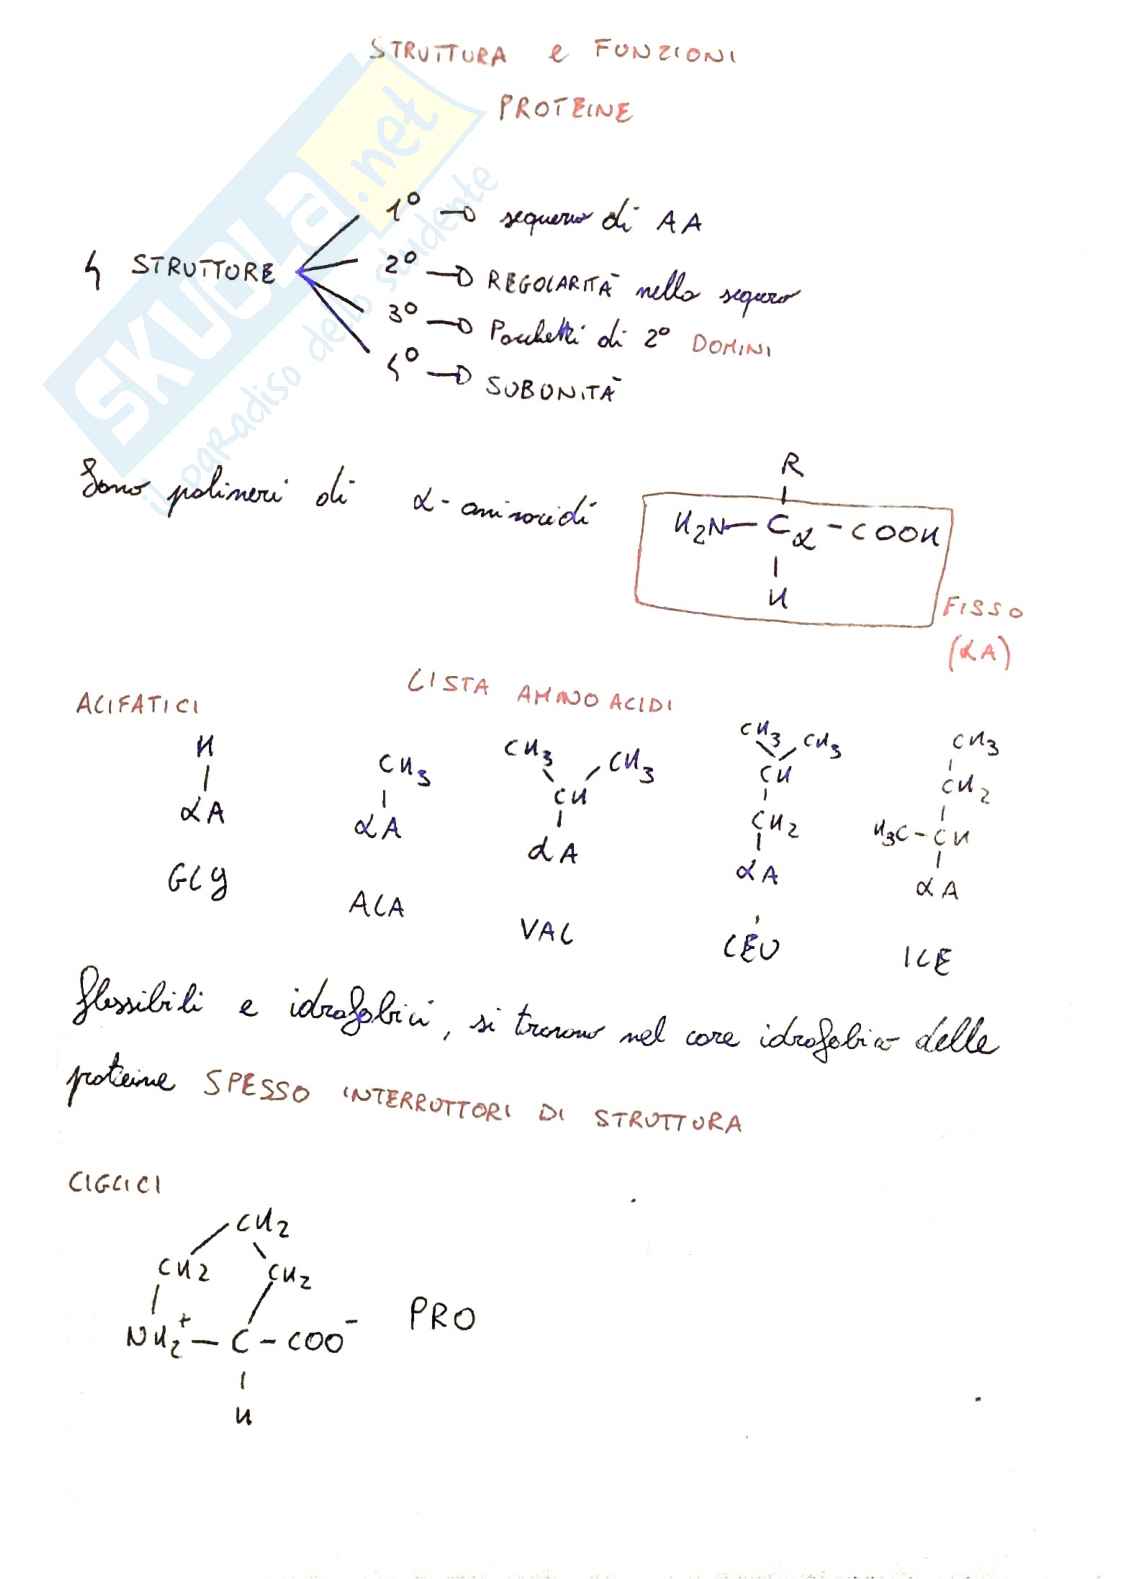 STRUTTURA e FUNZIONI
PROTEINE
SKUOLA.net
il paradiso dello studente
4 STRUTTURE
1° → sequenza di AA
2° → REGOLARITÀ nella sequenza
3° → Pacchetti di 2° DOMINI
4° → SUBUNITÀ
Sono polimeri di α-aminoacidi
R
H₂N-Cα-COOH
H
FISSO
(αA)
LISTA AMINOACIDI
ALIFATICI
H
αA
GLY
CH₃
αA
ALA
CH₃ CH₃
CH
αA
VAL
CH₃ CH₃
CH
CH₂
αA
LEU
CH₃
CH₂
H₃C-CH
αA
ILE
flessibili e idrofobici, si trovano nel core idrofobico delle
proteine SPESSO INTERRUTTORI DI STRUTTURA
CICLICI
CH₂
CH₂ CH₂
NH₂⁺-C-COO⁻
H
PRO